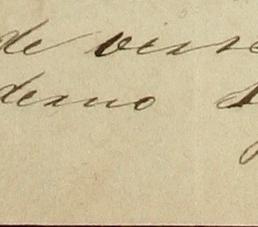 de verse
derno